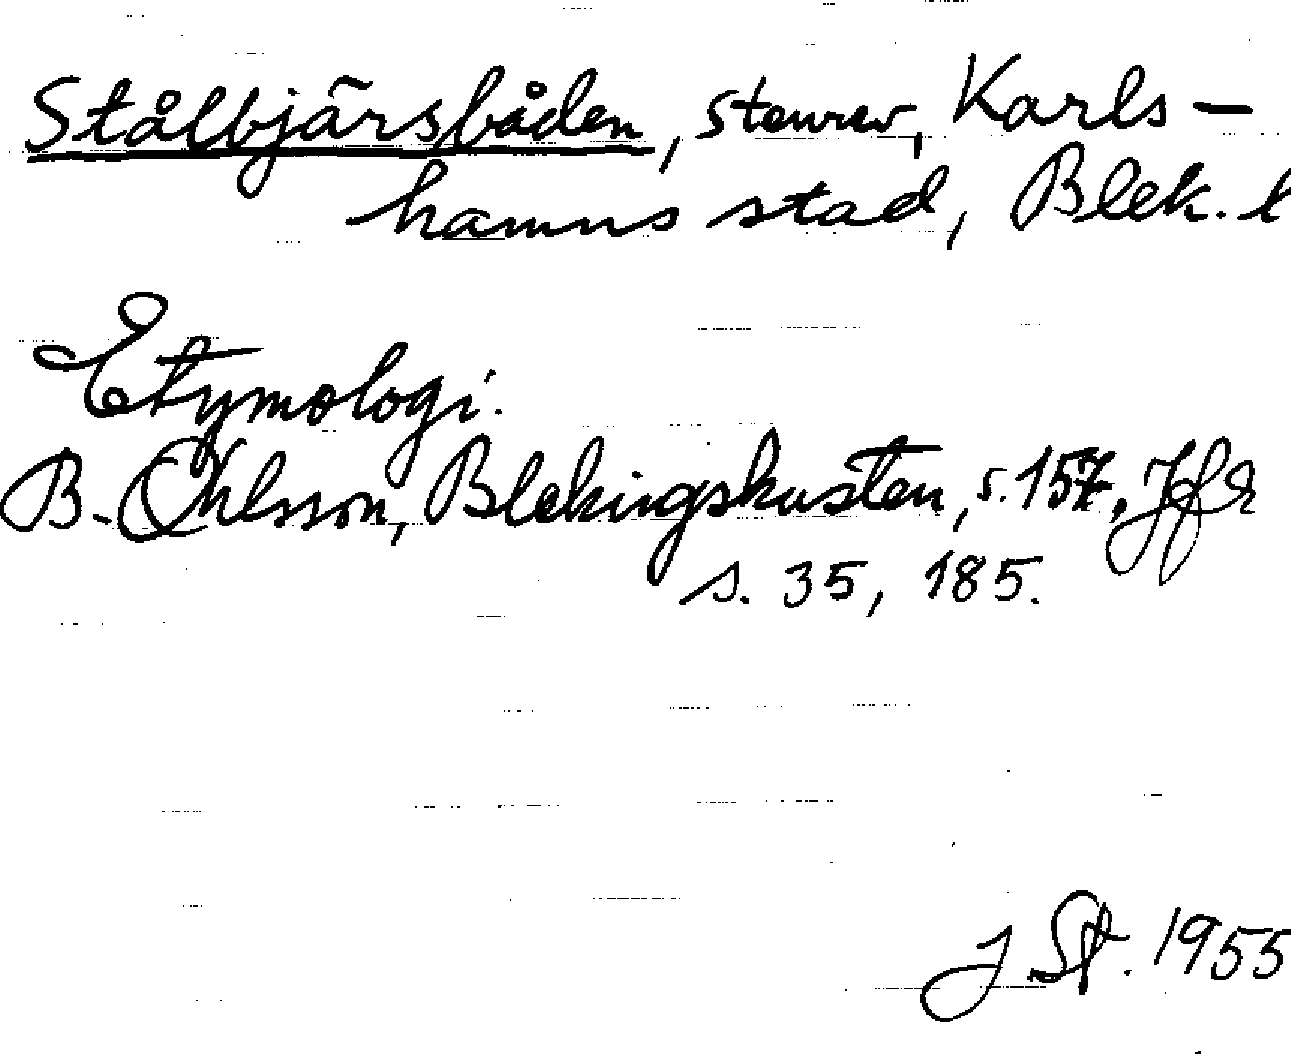 Stålbjärsbåden, stenrev, Karls-
hamns stad, Blek. l
Etymologi.
B. Ohlsson, Blekingskusten, s. 157. Jfr
s. 35, 185.
J St. 1955